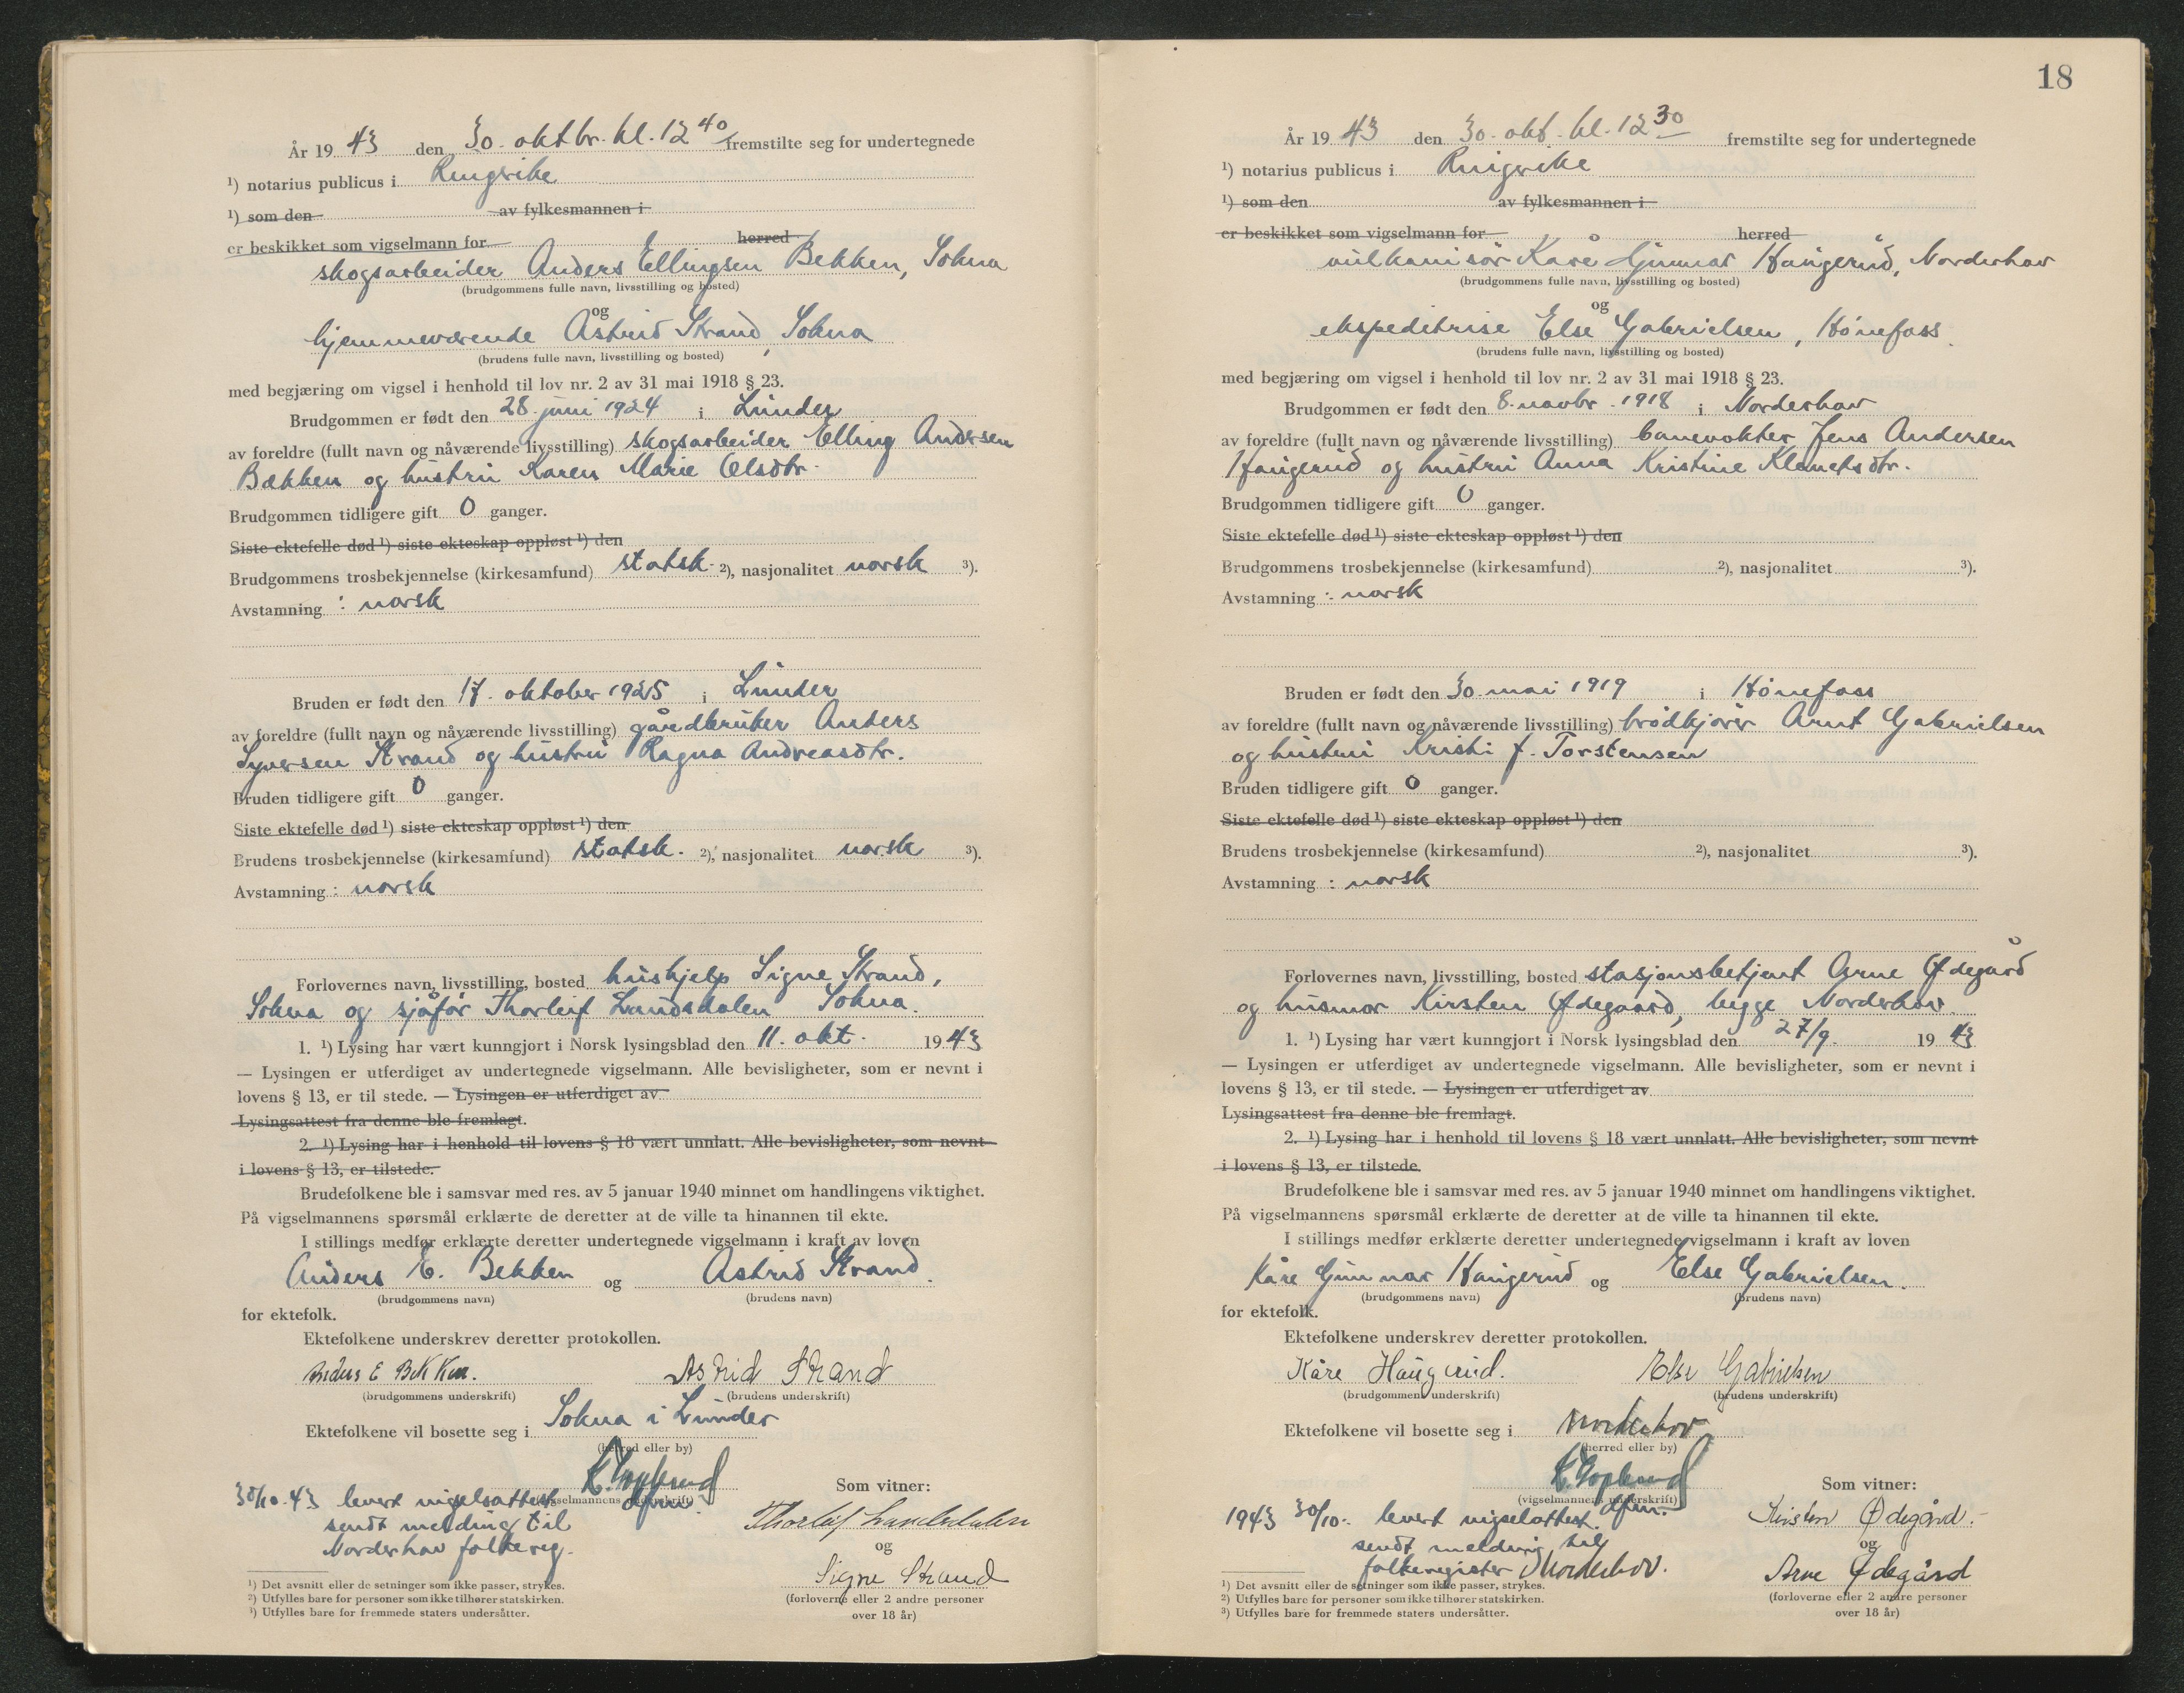 År 19 43 den 30. oktbr. kl. 12 40 fremstilte seg for undertegnede
¹) notarius publicus i Ringerike
¹) som den av fylkesmannen i
er beskikket som vigselmann for herred
skogsarbeider Anders Ellingsen Bekken, Sokna
(brudgommens fulle navn, livsstilling og bosted)
og
hjemmeværende Astrid Strand, Sokna
(brudens fulle navn, livsstilling og bosted)
med begjæring om vigsel i henhold til lov nr. 2 av 31 mai 1918 § 23.
Brudgommen er født den 28. juni 1924 i Lunder
av foreldre (fullt navn og nåværende livsstilling) skogsarbeider Elling Andersen
Bækken og hustru Karen Marie Olsdtr.
Brudgommen tidligere gift 0 ganger.
Siste ektefelle død ¹) siste ekteskap oppløst ¹) den
Brudgommens trosbekjennelse (kirkesamfund) statsk. ²), nasjonalitet norsk ³).
Avstamning : norsk
Bruden er født den 17. oktober 1925 i Lunder
av foreldre (fullt navn og nåværende livsstilling) gårdbruker Anders
Syversen Strand og hustru Ragna Andreasdtr.
Bruden tidligere gift 0 ganger.
Siste ektefelle død ¹) siste ekteskap oppløst ¹) den
Brudens trosbekjennelse (kirkesamfund) statsk. ²), nasjonalitet norsk ³).
Avstamning : norsk
Forlovernes navn, livsstilling, bosted hushjelp Signe Strand,
Sokna og sjåfør Thorleif Landsdalen Sokna.
1. ¹) Lysing har vært kunngjort i Norsk lysingsblad den 11. okt. 19 43
— Lysingen er utferdiget av undertegnede vigselmann. Alle bevisligheter, som er nevnt i
lovens § 13, er til stede. — Lysingen er utferdiget av
Lysingsattest fra denne ble fremlagt.
2. ¹) Lysing har i henhold til lovens § 18 vært unnlatt. Alle bevisligheter, som nevnt
i lovens § 13, er tilstede.
Brudefolkene ble i samsvar med res. av 5 januar 1940 minnet om handlingens viktighet.
På vigselmannens spørsmål erklærte de deretter at de ville ta hinannen til ekte.
I stillings medfør erklærte deretter undertegnede vigselmann i kraft av loven
Anders E. Bekken og Astrid Strand.
(brudgommens navn) (brudens navn)
for ektefolk.
Ektefolkene underskrev deretter protokollen.
Anders E Bekken. Astrid Strand
(brudgommens underskrift) (brudens underskrift)
Ektefolkene vil bosette seg i Sokna i Lunder
(herred eller by)
(vigselmannens underskrift) Som vitner:
30/10-43 levert vigselsattest
sendt melding til
Norderhov folkereg.
Thorleif Landsdalen
og
Signe Strand
(forloverne eller 2 andre personer
over 18 år)
¹) Det avsnitt eller de setninger som ikke passer, strykes.
²) Utfylles bare for personer som ikke tilhører statskirken.
³) Utfylles bare for fremmede staters undersåtter.
18
År 19 43 den 30. okt. kl. 12 30 fremstilte seg for undertegnede
¹) notarius publicus i Ringerike
¹) som den av fylkesmannen i
er beskikket som vigselmann for herred
vulkanisør Kåre Gunnar Haugerud, Norderhov
(brudgommens fulle navn, livsstilling og bosted)
og
ekspeditrise Else Gabrielsen, Hønefoss.
(brudens fulle navn, livsstilling og bosted)
med begjæring om vigsel i henhold til lov nr. 2 av 31 mai 1918 § 23.
Brudgommen er født den 8. novbr. 1918 i Norderhov
av foreldre (fullt navn og nåværende livsstilling) banevokter Jens Andersen
Haugerud og hustru Anna Kristine Klemetsdtr.
Brudgommen tidligere gift 0 ganger.
Siste ektefelle død ¹) siste ekteskap oppløst ¹) den
Brudgommens trosbekjennelse (kirkesamfund) ²), nasjonalitet ³).
Avstamning : norsk
Bruden er født den 30. mai 1919 i Hønefoss
av foreldre (fullt navn og nåværende livsstilling) brødkjører Arnt Gabrielsen
og hustru Kristi f. Torstensen
Bruden tidligere gift 0 ganger.
Siste ektefelle død ¹) siste ekteskap oppløst ¹) den
Brudens trosbekjennelse (kirkesamfund) ²), nasjonalitet ³).
Avstamning : norsk
Forlovernes navn, livsstilling, bosted stasjonsbetjent Arne Ødegård
og husmor Kirsten Ødegaard, begge Norderhov.
1. ¹) Lysing har vært kunngjort i Norsk lysingsblad den 27/9. 19 43
— Lysingen er utferdiget av undertegnede vigselmann. Alle bevisligheter, som er nevnt i
lovens § 13, er til stede. — Lysingen er utferdiget av
Lysingsattest fra denne ble fremlagt.
2. ¹) Lysing har i henhold til lovens § 18 vært unnlatt. Alle bevisligheter, som nevnt
i lovens § 13, er tilstede
Brudefolkene ble i samsvar med res. av 5 januar 1940 minnet om handlingens viktighet.
På vigselmannens spørsmål erklærte de deretter at de ville ta hinannen til ekte.
I stillings medfør erklærte deretter undertegnede vigselmann i kraft av loven
Kåre Gunnar Haugerud og Else Gabrielsen.
(brudgommens navn) (brudens navn)
for ektefolk.
Ektefolkene underskrev deretter protokollen.
Kåre Haugerud. Else Gabrielsen
(brudgommens underskrift) (brudens underskrift)
Ektefolkene vil bosette seg i Norderhov
(herred eller by)
(vigselmannens underskrift) Som vitner:
1943 30/10.- levert vigselattest.
sendt melding til
folkeregister i Norderhov.
Kirsten Ødegård.
og
Arne Ødegård
(forloverne eller 2 andre personer
over 18 år)
¹) Det avsnitt eller de setninger som ikke passer, strykes.
²) Utfylles bare for personer som ikke tilhører statskirken.
³) Utfylles bare for fremmede staters undersåtter.